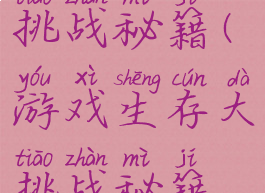 tiǎo zhàn mì jí
挑战秘籍(
yóu xì shēng cún dà
游戏生存大
tiāo zhàn mì jí
挑战秘籍